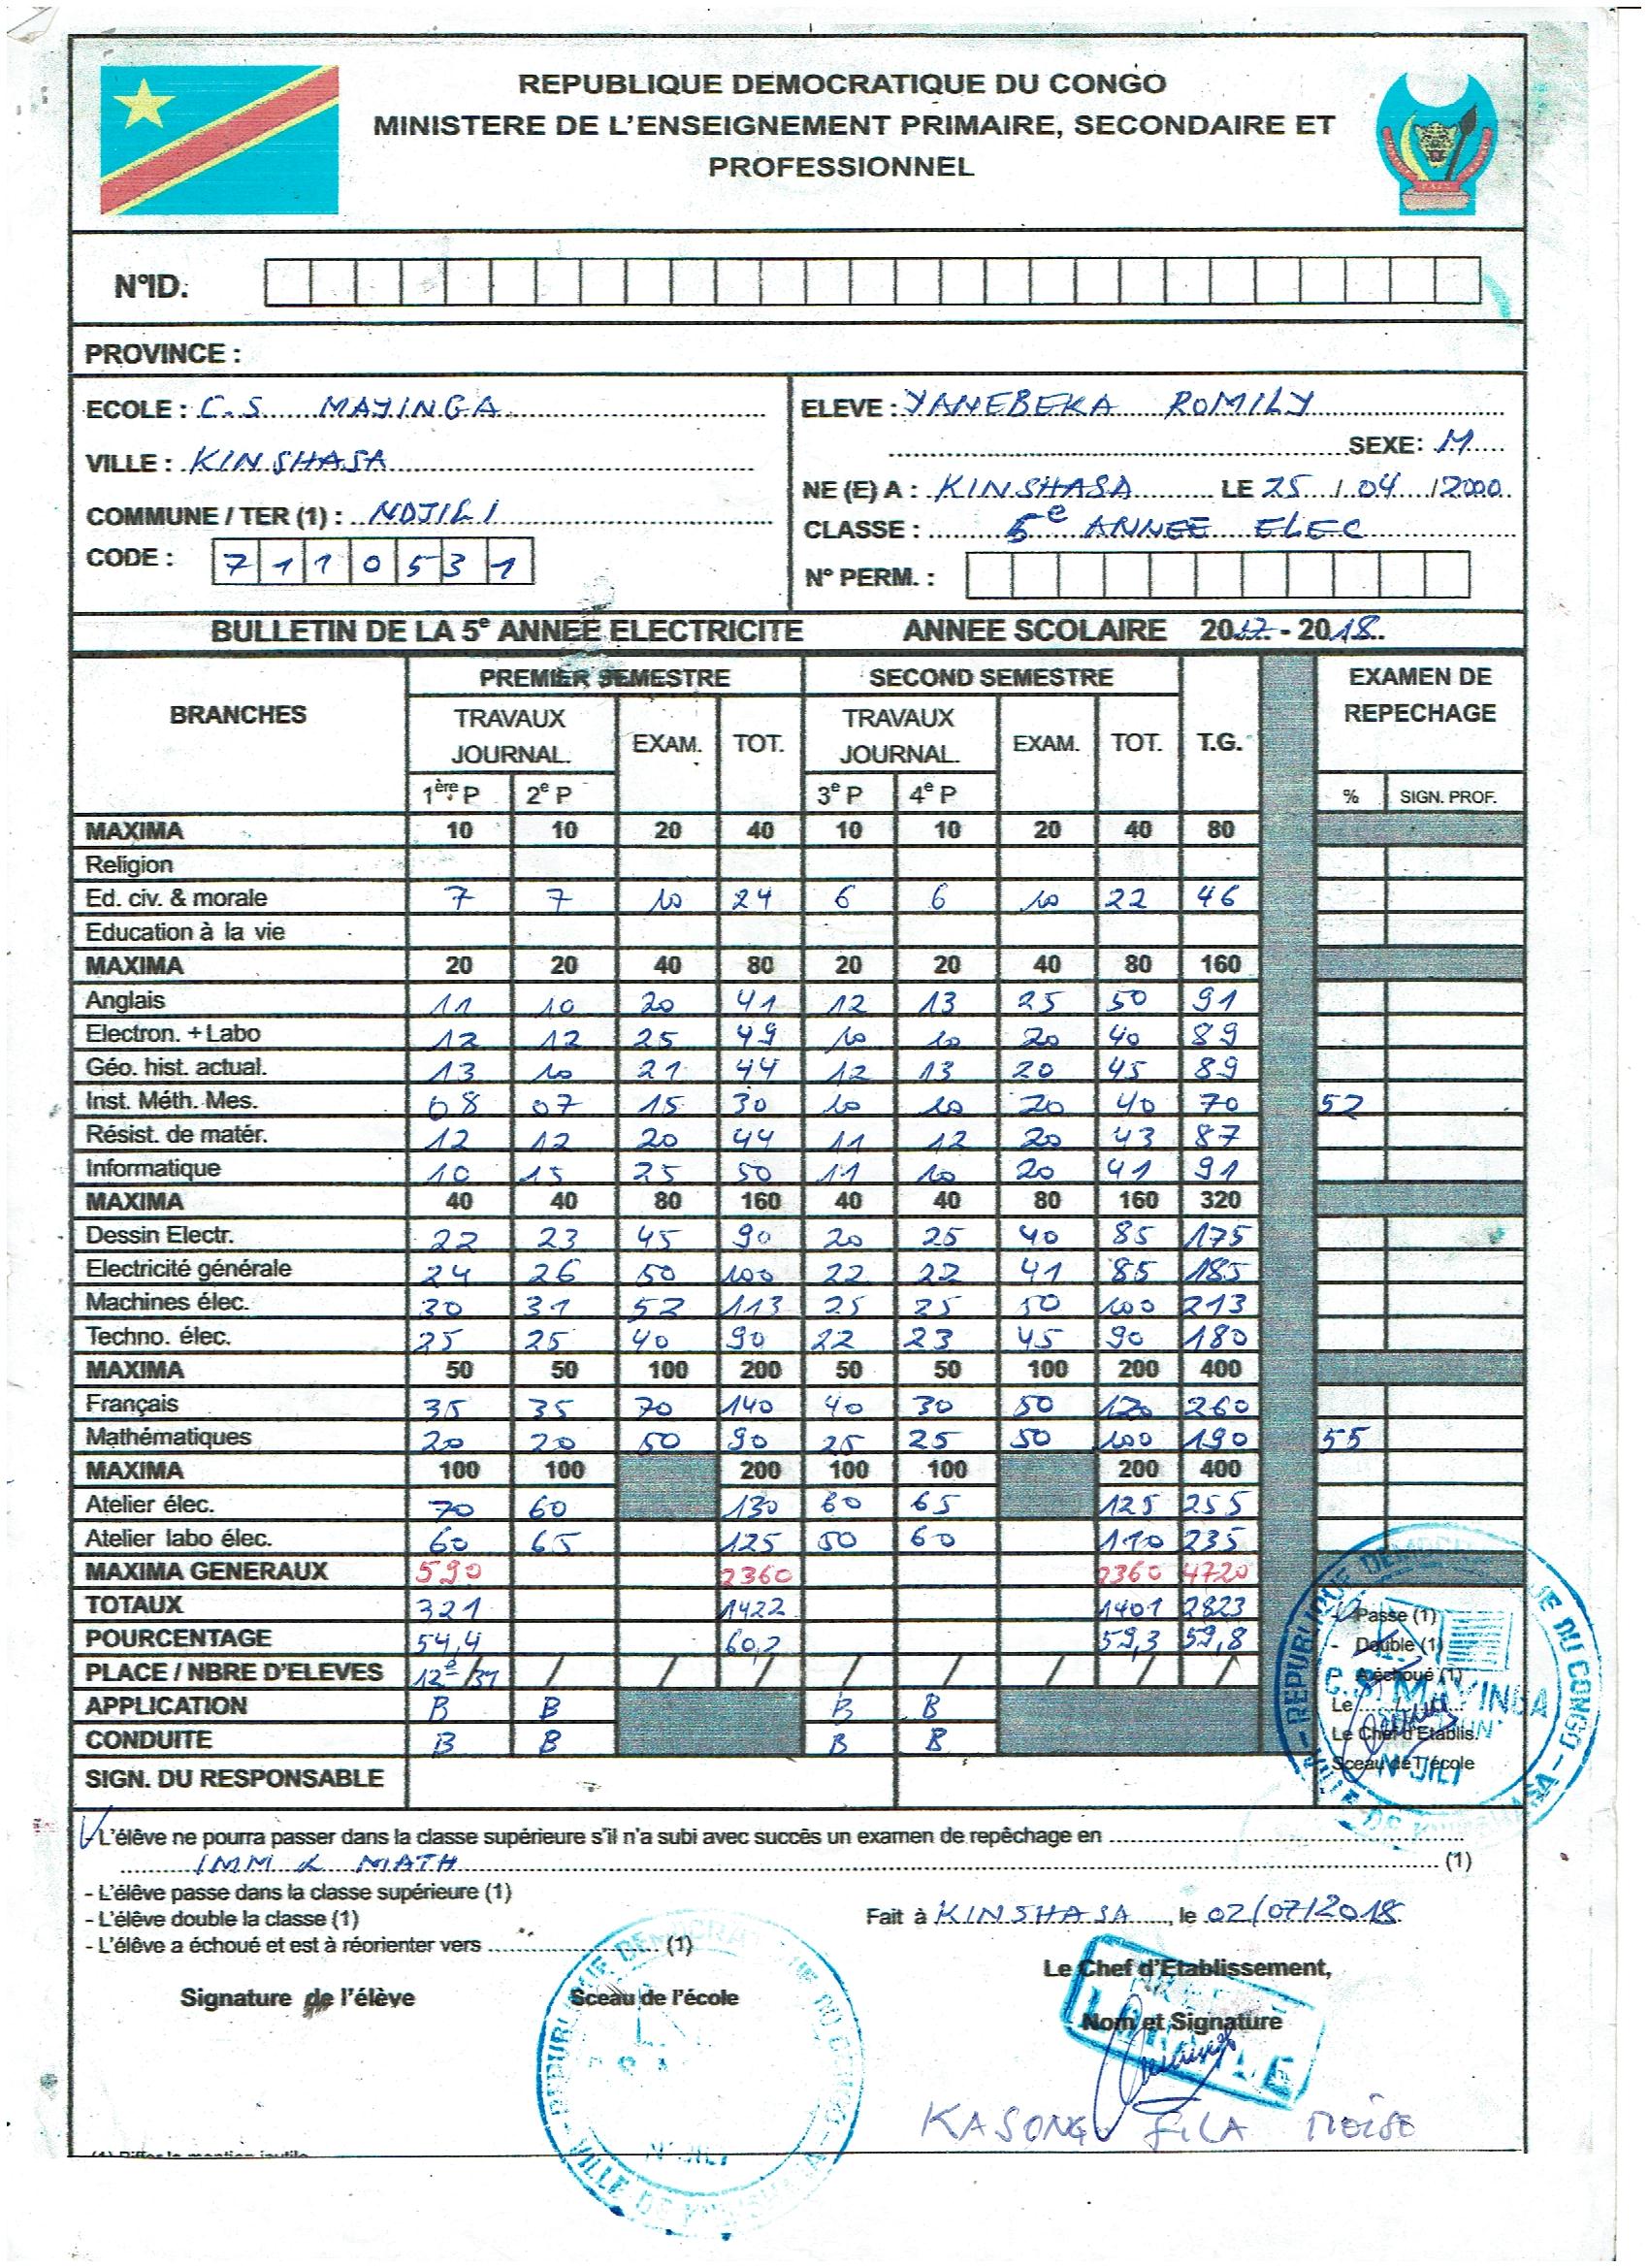 REPUBLIQUE DEMOCRATIQUE DU CONGO
MINISTERE DE L'ENSEIGNEMENT PRIMAIRE, SECONDAIRE ET
PROFESSIONNEL
N°ID.
PROVINCE :
ECOLE : C.S. MAYINGA
VILLE : KINSHASA
COMMUNE / TER (1) : NDJILI
CODE : 7 1 1 0 5 3 1
ELEVE : YANEBEKA ROMILY
SEXE: M
NE (E) A : KINSHASA LE 25 / 04 / 2000
CLASSE : 5e ANNEE ELEC
N° PERM. :
BULLETIN DE LA 5e ANNEE ELECTRICITE ANNEE SCOLAIRE 2017 - 2018
BRANCHES PREMIER SEMESTRE SECOND SEMESTRE T.G. EXAMEN DE REPECHAGE
TRAVAUX JOURNAL. EXAM. TOT. TRAVAUX JOURNAL. EXAM. TOT.
1ère P 2e P 3e P 4e P % SIGN. PROF.
MAXIMA 10 10 20 40 10 10 20 40 80
Religion
Ed. civ. & morale 7 7 10 24 6 6 10 22 46
Education à la vie
MAXIMA 20 20 40 80 20 20 40 80 160
Anglais 11 10 20 41 12 13 25 50 91
Electron. + Labo 12 12 25 49 10 10 20 40 89
Géo. hist. actual. 13 10 21 44 12 13 20 45 89
Inst. Méth. Mes. 08 07 15 30 10 10 20 40 70 52
Résist. de matér. 12 12 20 44 11 12 20 43 87
Informatique 10 15 25 50 11 10 20 41 91
MAXIMA 40 40 80 160 40 40 80 160 320
Dessin Electr. 22 23 45 90 20 25 40 85 175
Electricité générale 24 26 50 100 22 22 41 85 185
Machines élec. 30 31 52 113 25 25 50 100 213
Techno. élec. 25 25 40 90 22 23 45 90 180
MAXIMA 50 50 100 200 50 50 100 200 400
Français 35 35 70 140 40 30 50 120 260
Mathématiques 20 20 50 90 25 25 50 100 190 55
MAXIMA 100 100 200 100 100 200 400
Atelier élec. 70 60 130 60 65 125 255
Atelier labo élec. 60 65 125 50 60 110 235
MAXIMA GENERAUX 590 2360 2360 4720
TOTAUX 321 1422 1401 2823
POURCENTAGE 54,4 60,2 59,3 59,8
PLACE / NBRE D'ELEVES 12e/31 / / / / / / / /
APPLICATION B B B B
CONDUITE B B B B
SIGN. DU RESPONSABLE
- Passe (1)
- Double (1)
- A échoué (1)
Le
Le Chef d'Etablis.
Sceau de l'école
REPUBLIQUE DEMOCRATIQUE DU CONGO
C.S. MAYINGA
N'DJILI
L'élève ne pourra passer dans la classe supérieure s'il n'a subi avec succès un examen de repêchage en
IMM & MATH (1)
- L'élève passe dans la classe supérieure (1)
- L'élève double la classe (1)
- L'élève a échoué et est à réorienter vers (1)
Fait à KINSHASA, le 02/07/2018
Le Chef d'Etablissement,
Signature de l'élève Sceau de l'école
Nom et Signature
KASONGO FILA MOÏSE
(1) Biffer la mention inutile